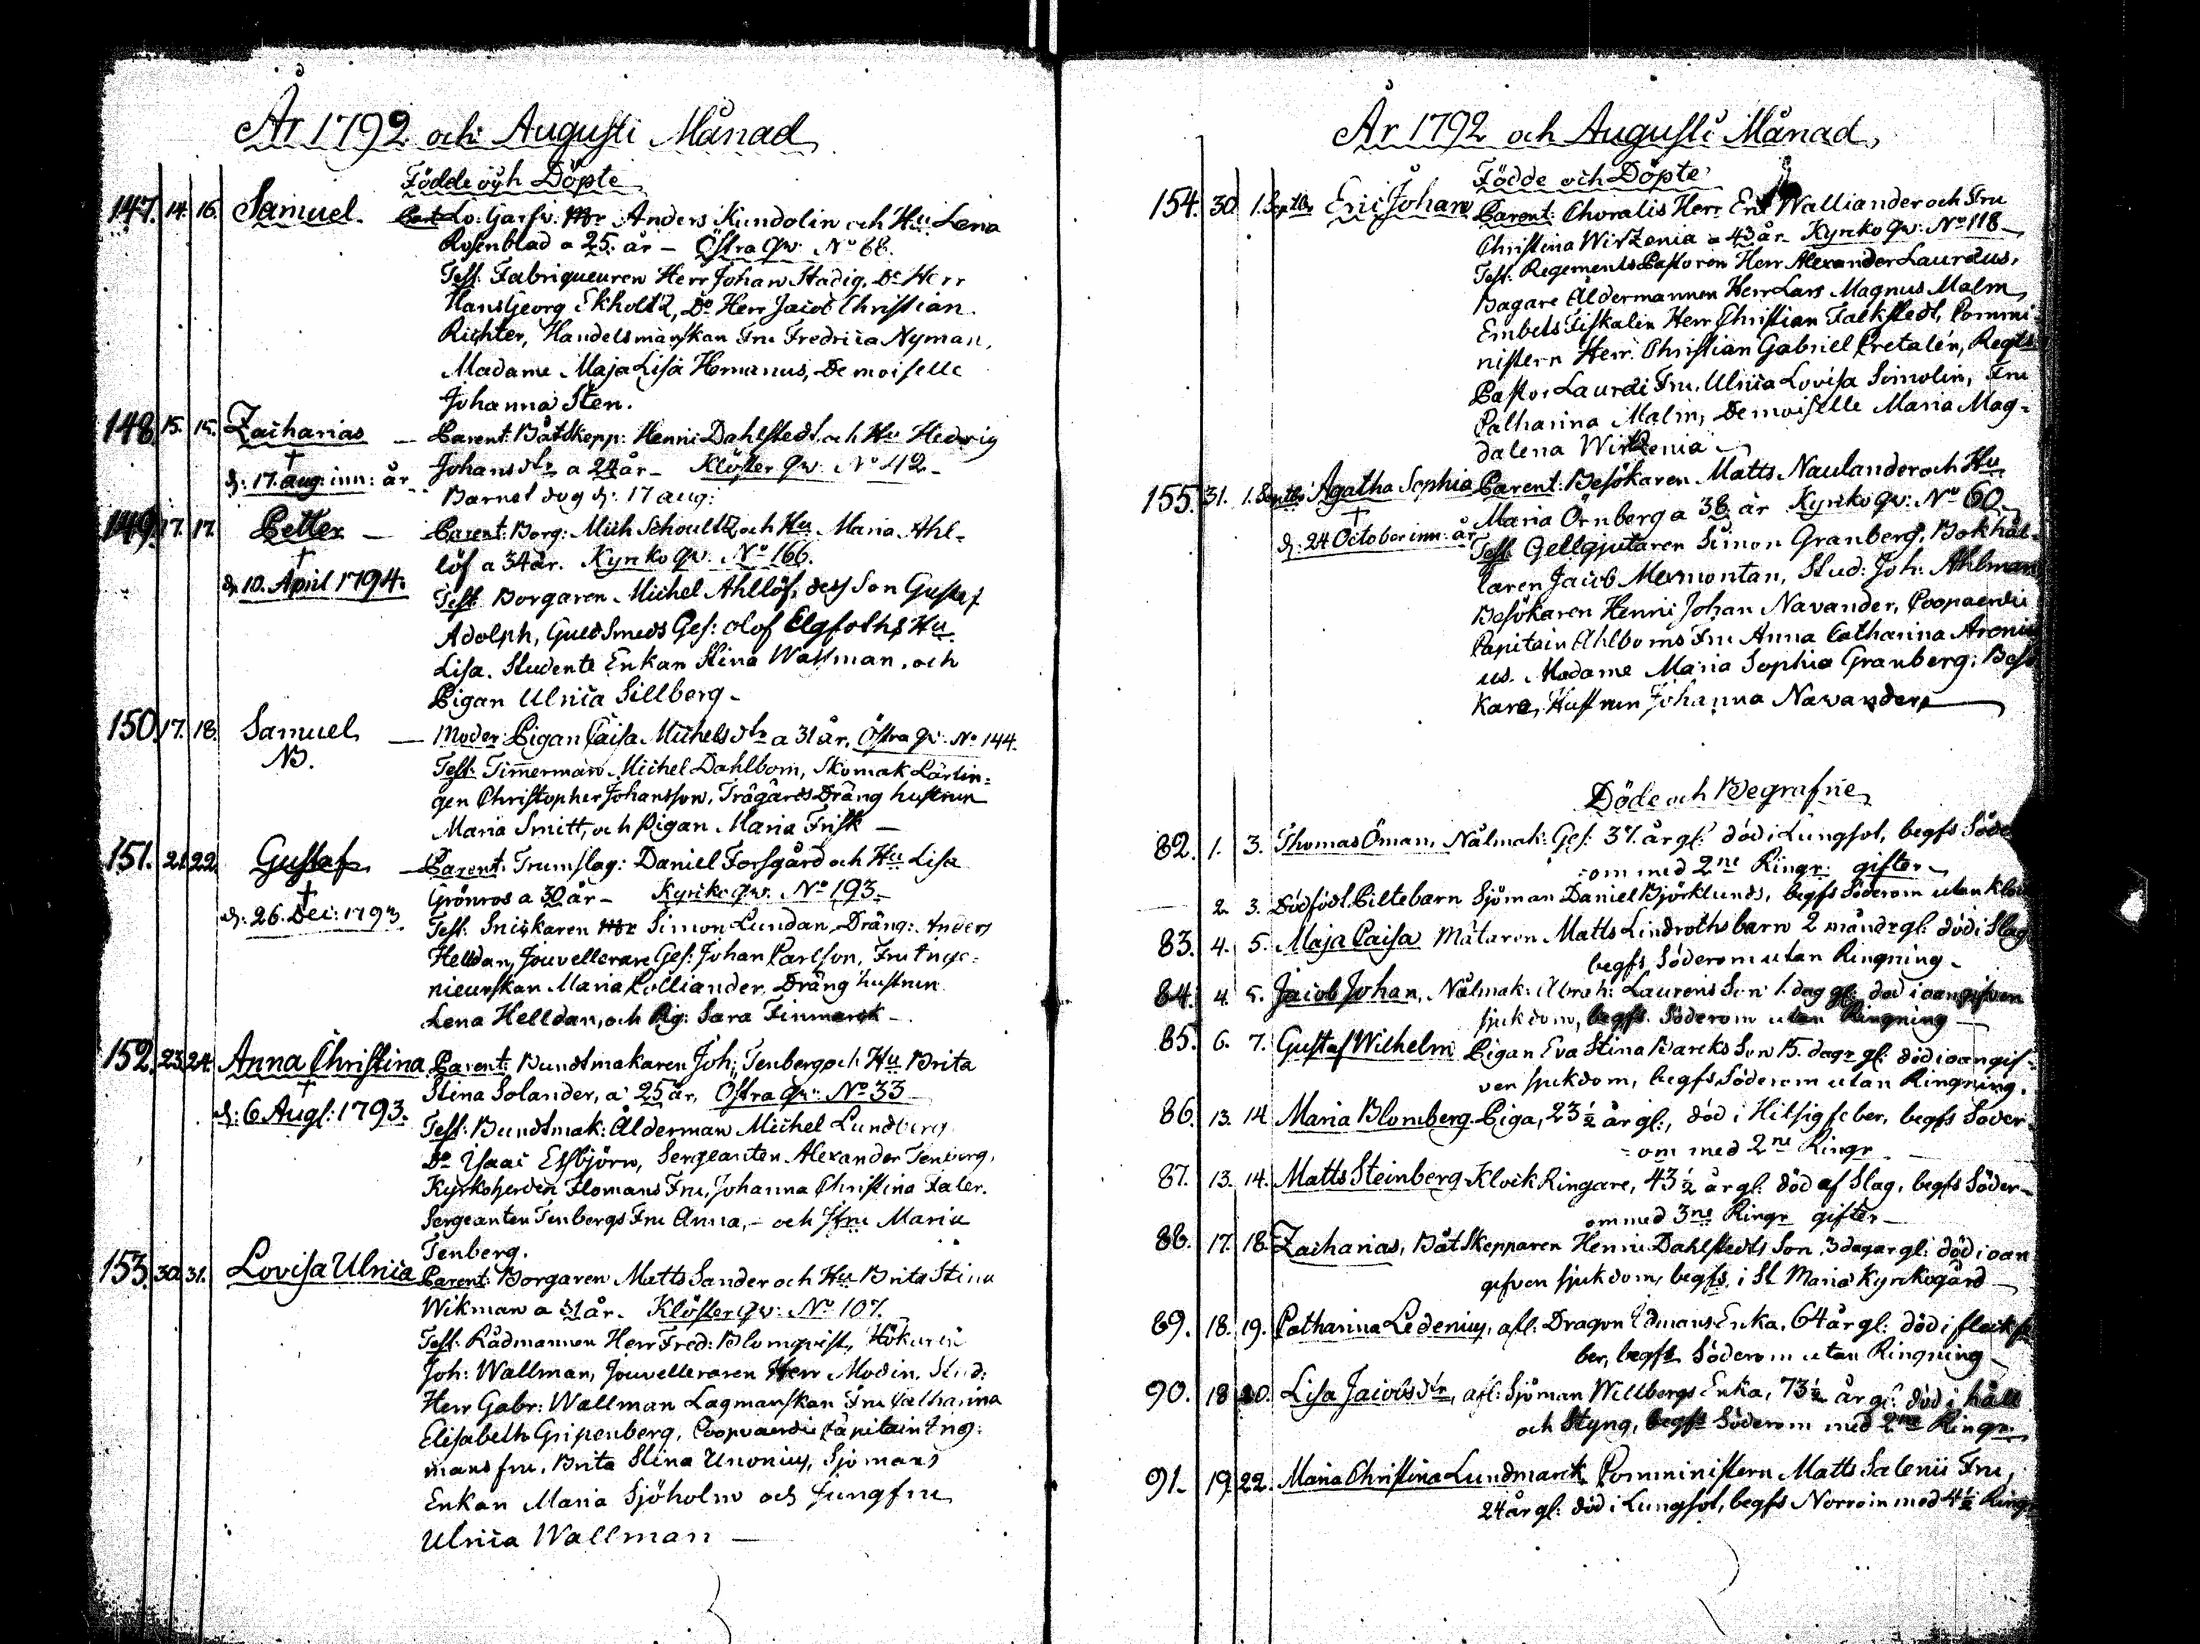 År 1792 och Augusti Månad
Födde och Döpte
147. 14. 16. Samuel. Lo: Garfv: Mr Anders Kundolin och Hu Lena
Rosenblad a 25. år – Östra qv: No 68.
Test: Fabriqueuren Herr Johan Stadig, Do Herr
Hans Georg Ekholtz, Do Herr Jacob Christian
Richter, Handelsmanskan Fru Fredrica Nyman,
Madame Maja Lisa Homanus, Demoiselle
Johanna Sten.
148. 15. 15. Zacharias – Parent: Båtskepp: Henric Dahlstedt och Hu Hedvig
Johansdtr a 24 år – Klöster qv: No 112 –
† d: 17. aug: inn: år Barnet dog d: 17 aug:
149. 17. 17. Petter – Parent: Borg: Mich Schoultz och Hu Maria Ahl-
löf a 34 år. Kyrko qv: No 166.
† d. 10. April 1794. Test: Borgaren Michel Ahllöf, dess Son Gustaf
Adolph, Guldsmeds Ges: Olof Elgfoths Hu
Lisa. Studente Enkan Stina Wallman, och
Pigan Ulrica Sillberg –
150. 17. 18. Samuel – Moder Pigan Caisa Michelsdtr a 31 år, Östra qv: No 144.
NB. Test: Timmerman Michel Dahlbom, Skomak Lärlin-
gen Christopher Johansson, Trägårds Dräng hustrun
Maria Smitt, och Pigan Maria Frisk –
151. 21. 22. Gustaf – Parent: Trumslag: Daniel Forsgård och Hu Lisa
Grönros a 30 år – Kyrko qv: No 193 –
† d: 26. Dec: 1793. Test: Snickaren Mr Simon Lundan, Dräng: Anders
Helldan, Jouvellerare Ges: Johan Carlson, Fru Inge-
nieurskan Maria Kolliander. Dräng hustrun
Lena Helldan, och Pig: Sara Finmarck –
152. 23. 24. Anna Christina Parent: Bundtmakaren Joh: Tenberg och Hu Brita
Stina Solander, a 25 år, Östra qv: No 33
† d: 6 Aug: 1793. Test: Bundtmak: Ålderman Michel Lundberg
Do Isaac Essbjörn, Sergeanten Alexander Tenberg,
Kyrkoherden Flomans Fru, Johanna Christina Faler.
Sergeanten Tenbergs Fru Anna, – och Jfru Maria
Tenberg.
153. 30. 31. Lovisa Ulrica Parent: Borgaren Matts Sander och Hu Brita Stina
Wikman a 31 år. Klöster qv: No 107.
Test: Rådmannen Herr Fred: Blomqvist, Hökaren
Joh: Wallman, Jouvelleraren Herr Modin, Stud:
Herr Gabr: Wallman Lagmanskan Fru Catharina
Elisabeth Gripenberg, Coopvaerdie Capitain Eng-
mans fru, Brita Stina Unonius, Sjömans
Enkan Maria Sjöholm och Jungfru
Ulrica Wallman –
År 1792 och Augusti Månad,
Födde och Döpte
154. 30. 1. Septbr Eric Johan Parent: Choralis Herr Eric Walliander och Fru
Christina Wirzenia a 43 år – Kyrko qv: No 118 –
Test: Regements Pastoren Herr Alexander Lauræus,
Bagare Åldermannen Herr Lars Magnus Malm
Embets Fiskalen Herr Christian Falkstedt, Commi-
nistern Herr Christian Gabriel Cretalén, Regts
Pastor Lauræi Fru, Ulrica Lovisa Simolin, Fru
Catharina Malm, Demoiselle Maria Mag-
dalena Wirzenia –
155. 31. 1. Septbr Agatha Sophia Parent: Besökaren Matts Naulander och Hu
Maria Örnberg a 38 år Kyrko qv: No 60 –
† d: 24 October inn: år Test: Gellgjutaren Simon Granberg, Bokhål-
laren Jacob Mermontan, Stud: Joh: Ahlman
Besökaren Henric Johan Navander, Coopaerdie
Capitain Ahlboms Fru Anna Catharina Aroni-
us. Madame Maria Sophia Granberg; Besö
kare, Hustrun Johanna Navander,
Döde och Begrafne
82. 1. 3. Thomas Öman, Nålmak: Ges: 37. år gl: död i Lungsot, begfs Söder
-om med 2ne Ringr: gifter –
2. 3. Dödfödt Piltebarn Sjöman Daniel Björklunds, begfs Söderom utan Klock
83. 4. 5. Maja Caisa Mätaren Matts Lindroths barn 2 månadr gl: död i Slag
begfs Söderom utan Ringning –
84. 4. 5. Jacob Johan, Nålmak: Abrah: Laurens Son 1. dag gl: död i oangifven
sjukdom, begfs Söderom utan Ringning –
85. 6. 7. Gustaf Wilhelm Pigan Eva Stina Barcks Son 15. dagr gl: död i oangif-
ven sjukdom, begfs Söderom utan Ringning.
86. 13. 14. Maria Blomberg Piga, 23 1/2 år gl:, död i Hitsig feber, begfs Söder-
-om med 2ne Ringr –
87. 13. 14. Matts Steinberg Klock Ringare, 43 1/2 år gl: död af Slag, begfs Söder-
om med 3ne Ringr gifter –
88. 17. 18. Zacharias, Båt Skepparen Henric Dahlstedts Son, 3 dagar gl: död i oan
gifven sjukdom, begfs, i St Maria Kyrkogård –
89. 18. 19. Catharina Ledenius, afl: Dragon Edmans Enka, 64 år gl: död i fleckfe
ber, begfs Söderom utan Ringning –
90. 18 20. Lisa Jacobsdtr, afl: Sjöman Willbergs Enka, 73 1/2 år gl: död i håll
och Styng, begfs Söderom med 2ne Ringr
91. 19. 22. Maria Christina Lundmarck Comministern Matts Salenii Fru,
24 år gl: död i Lungsot, begfs Norrom med 4 1/2 Ring